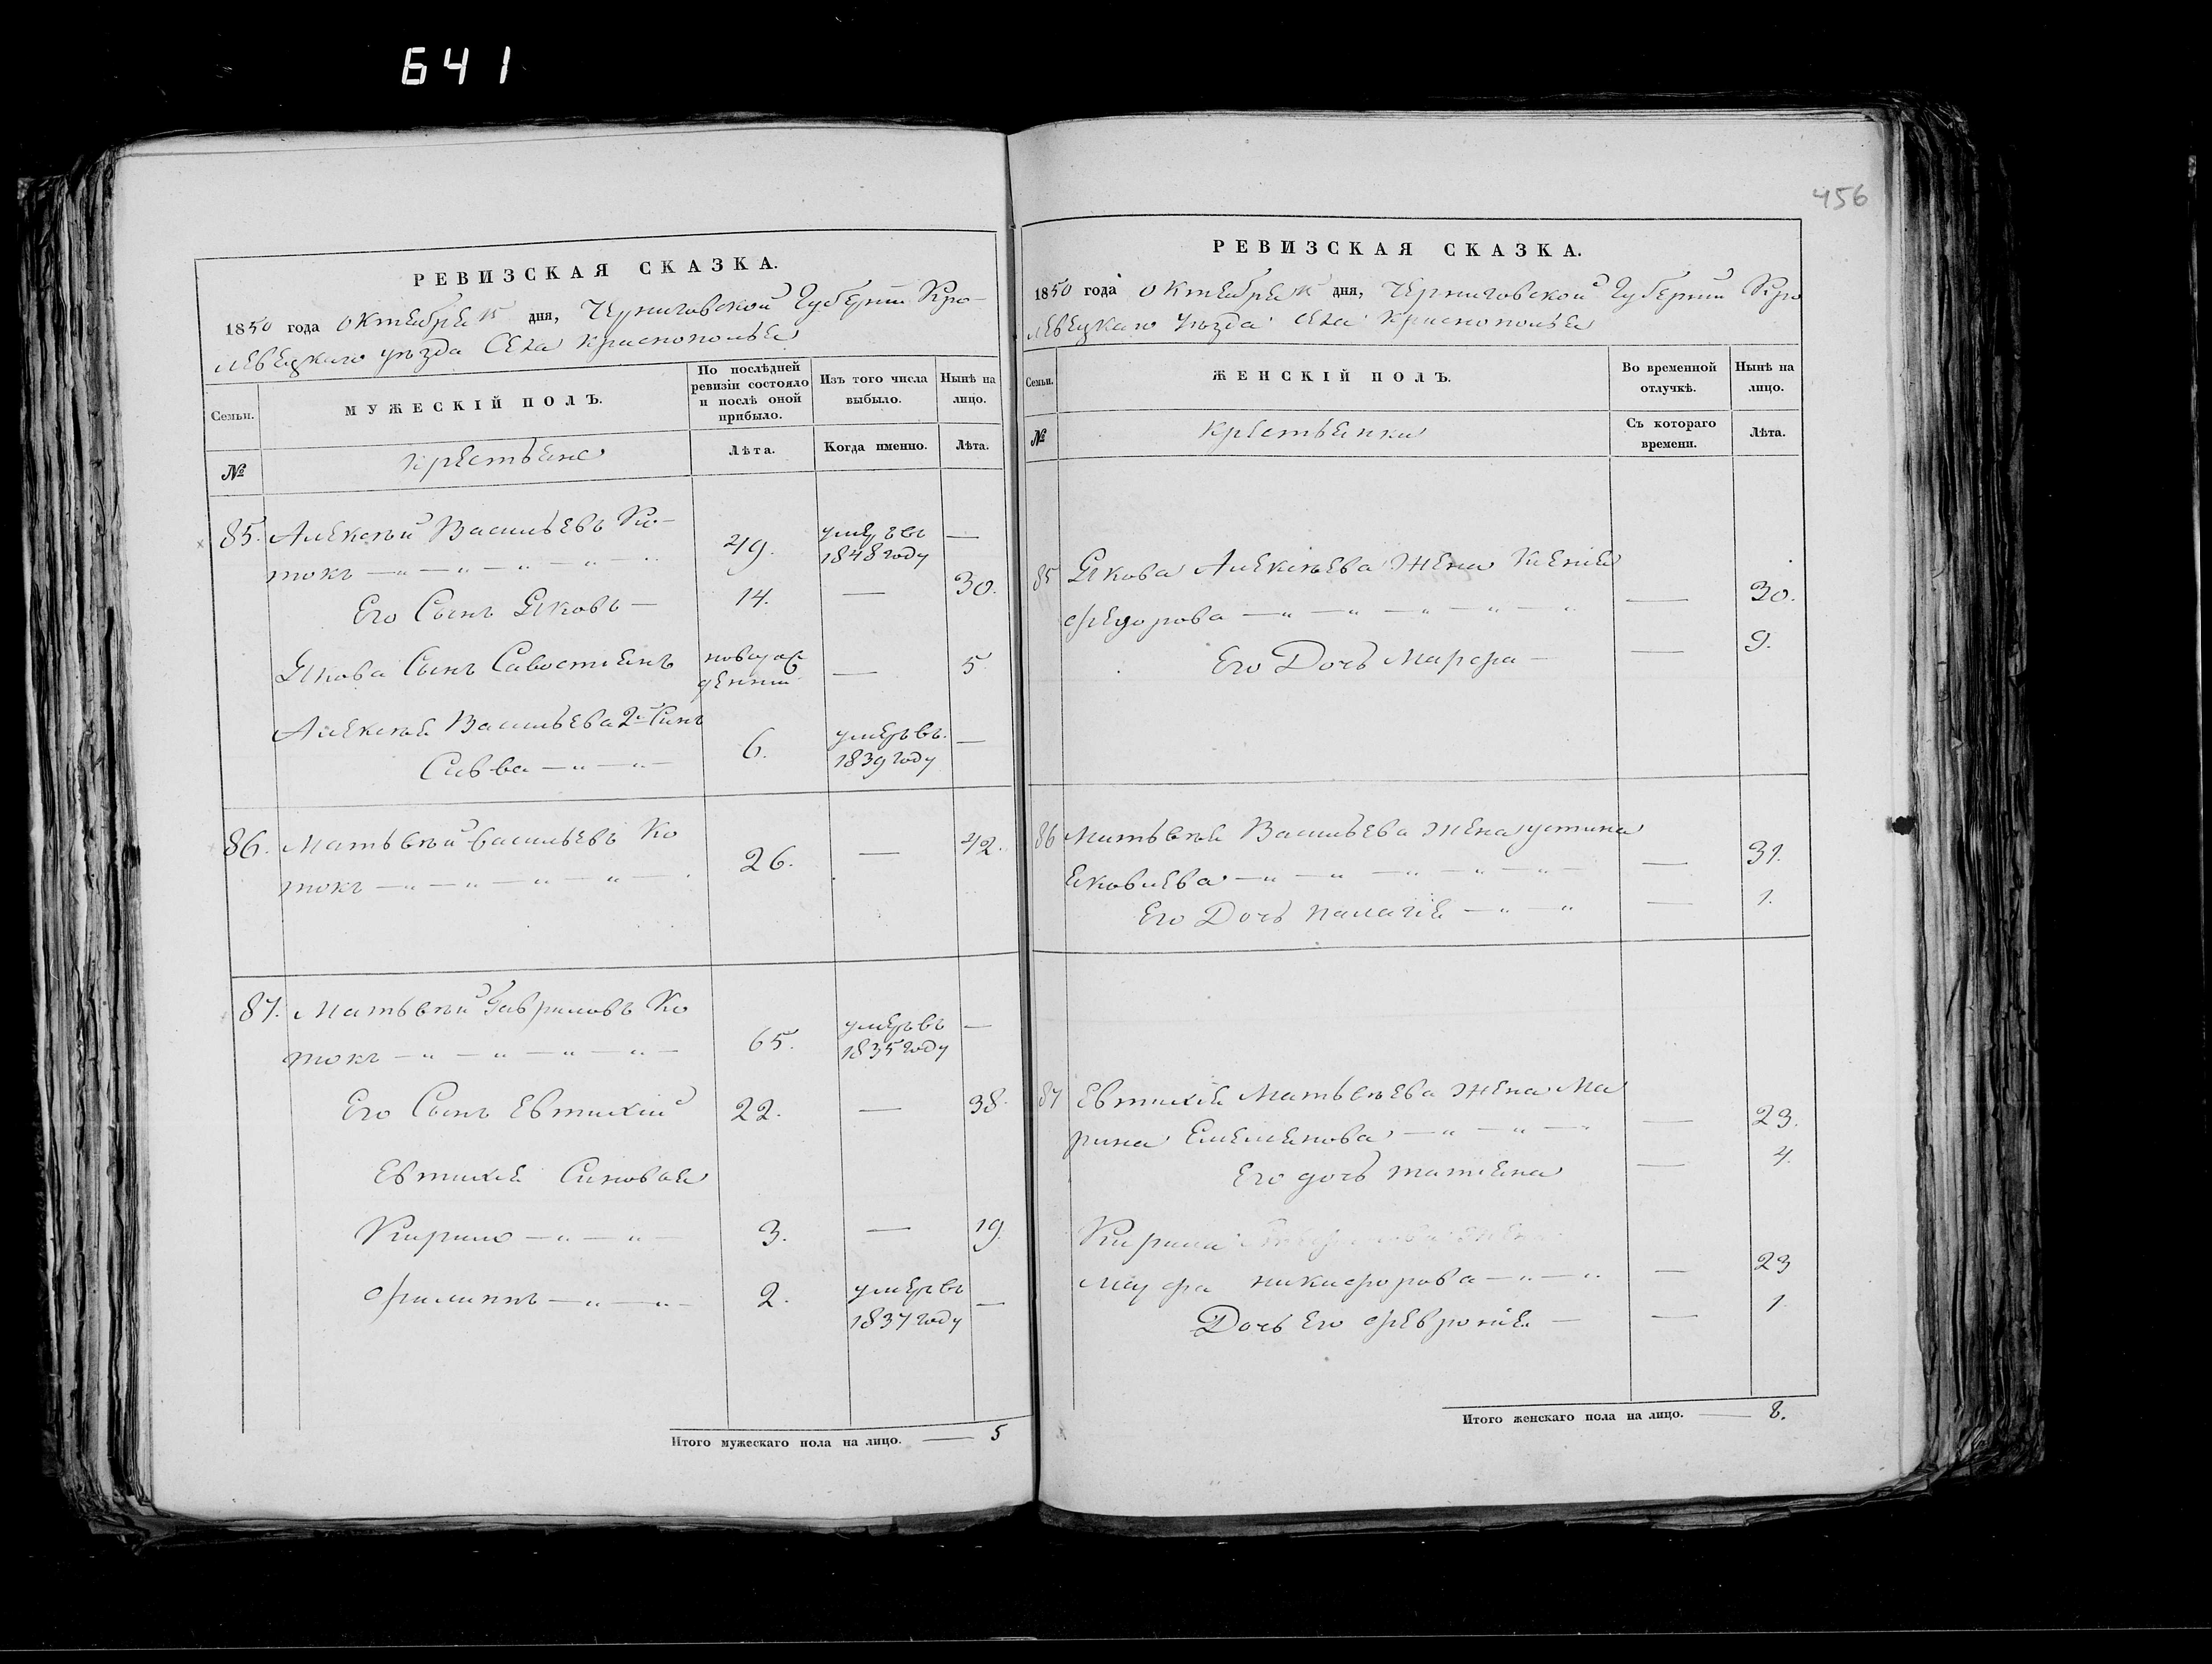 641
456
РЕВИЗСКАЯ СКАЗКА.
1850 года октября 15 дня, Черниговской Губернии Кро-
левецкаго уѣзда Села Краснополья
Семьи.
МУЖЕСКІЙ ПОЛЪ.
По послѣдней
ревизіи состояло
и послѣ оной
прибыло.
Изъ того числа
выбыло.
Нынѣ на
лицо.
№
Крестьяне
Лѣта.
Когда именно.
Лѣта.
85. Алексѣй Васильевъ Ко-
токъ — 49. умеръ въ 1848 году —
Его Сынъ Яковъ — 14. — 30.
Якова Сынъ Савостіянъ новорож
денный — 5
Алексѣя Васильева 2й Синъ
Савва — 6. умеръ въ 1839 году —
86. Матьвѣй Васильевъ Ко
токъ — 26. — 42.
87. Матьвѣй Гавриловъ Ко
токъ — 65. умеръ въ 1835 году —
Его Сынъ Евтихій 22. — 38.
Евтихія Синовья
Кирило — 3. — 19.
Филиппъ — 2. умеръ въ 1837 году —
Итого мужескаго пола на лицо. — 5
РЕВИЗСКАЯ СКАЗКА.
1850 года октября 15 дня, Черниговской Губернии Кро
левецкаго уѣзда села Краснополья
Семьи.
ЖЕНСКІЙ ПОЛЪ.
Во временной
отлучкѣ.
Нынѣ на
лицо.
№
Крестьянки
Съ котораго
времени.
Лѣта.
85 Якова Алексѣева Жена Ксенія
Федорова — 30.
Его Дочь Марфа — 9.
86 Матьвѣя Васильева жена устина
Яковлева — 31.
Его Дочь Палагія — 1.
87 Евтихія Матьвѣева жена Ма
рина Емельянова — 23.
Его дочь татіяна — 4.
Кирила жена
Марфа никифорова — 23
Дочь Его Февронія — 1
Итого женскаго пола на лицо. — 8.